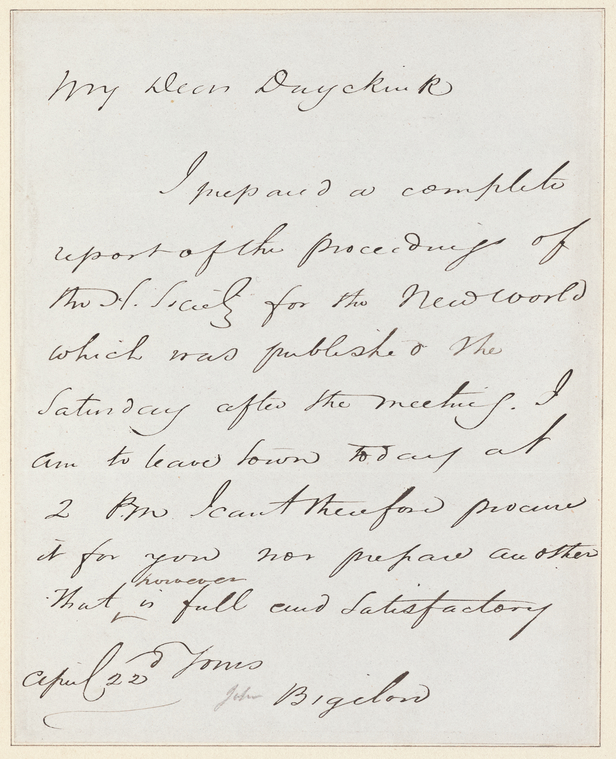 My Dear Duyckink
I prepared a complete
report of the proceedings of
the H. Society for the New World
which was published the
Saturday after the meeting. I
am to leave town today at
2 P.m I cant therefore procure
it for you nor prepare another
however
That is full and satisfactory
April 22d Yours
John Bigelow